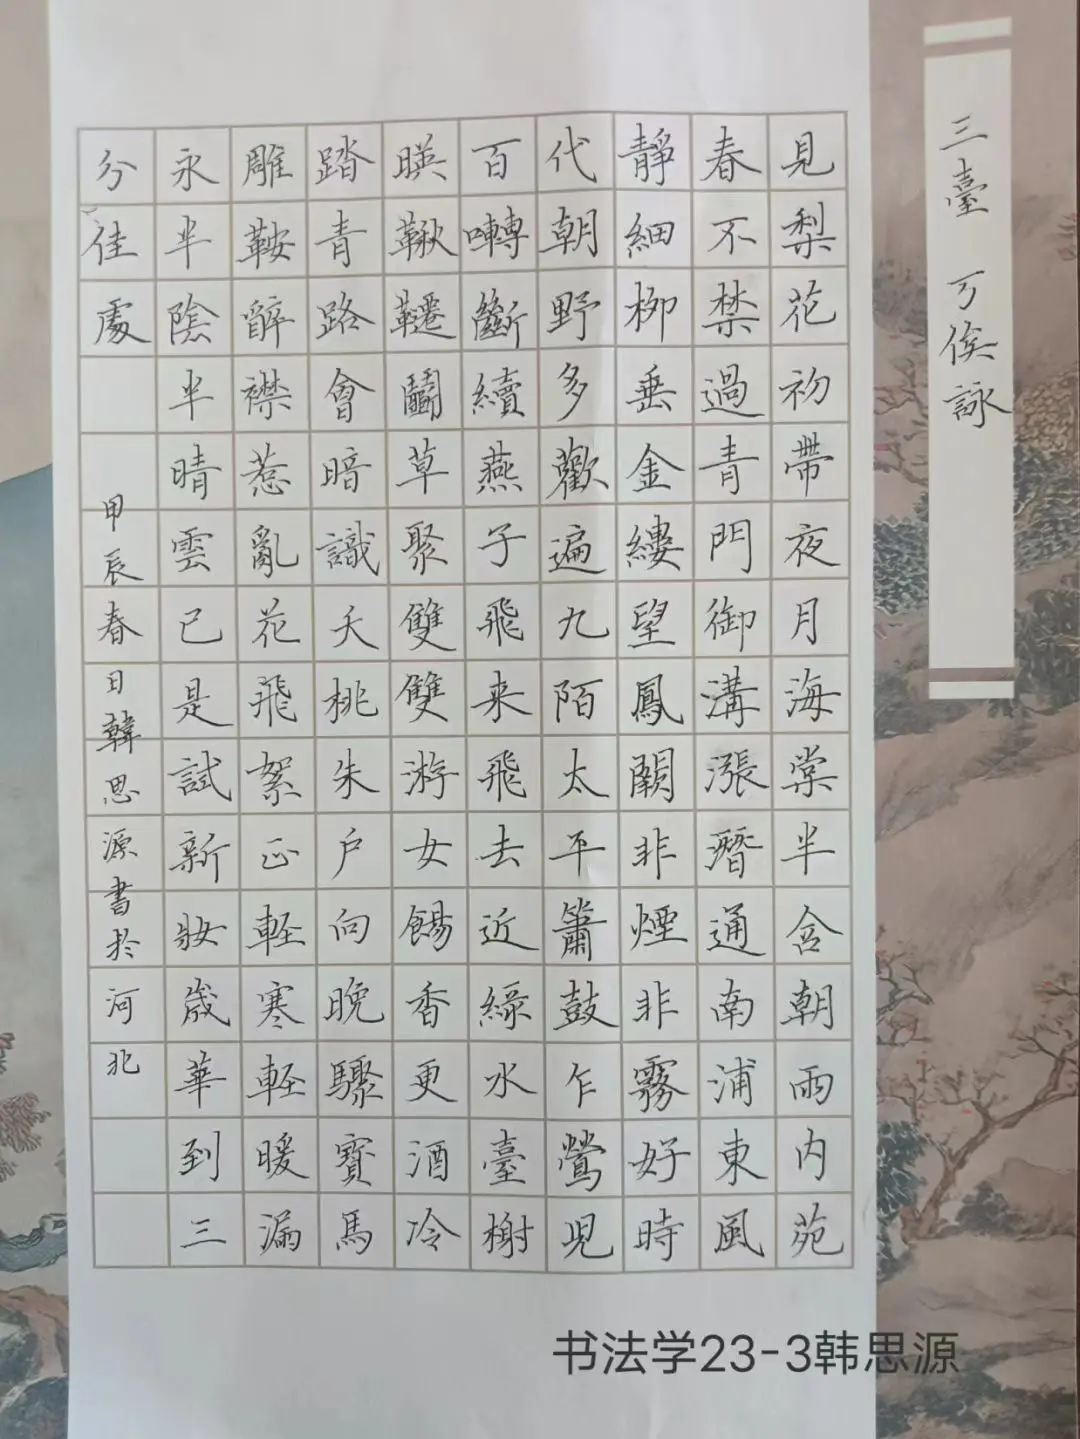 三臺 丂俟詠
見梨花初帶夜月海棠半含朝雨内苑
春不禁過青門御溝漲潛通南浦東風
靜細柳垂金縷望鳳闕非煙非霧好時
代朝野多歡遍九陌太平簫鼓乍鶯兒
百囀斷續燕子飛来飛去近綠水臺榭
暎鞦韆鬭草聚雙雙游女餳香更酒冷
踏青路會暗識夭桃朱户向晚驟寶馬
雕鞍醉襟惹亂花飛絮正輕寒輕暖漏
永半陰半晴雲已是試新妝歲華到三
分佳處
甲辰春日韓思源書於河北
书法学23-3韩思源